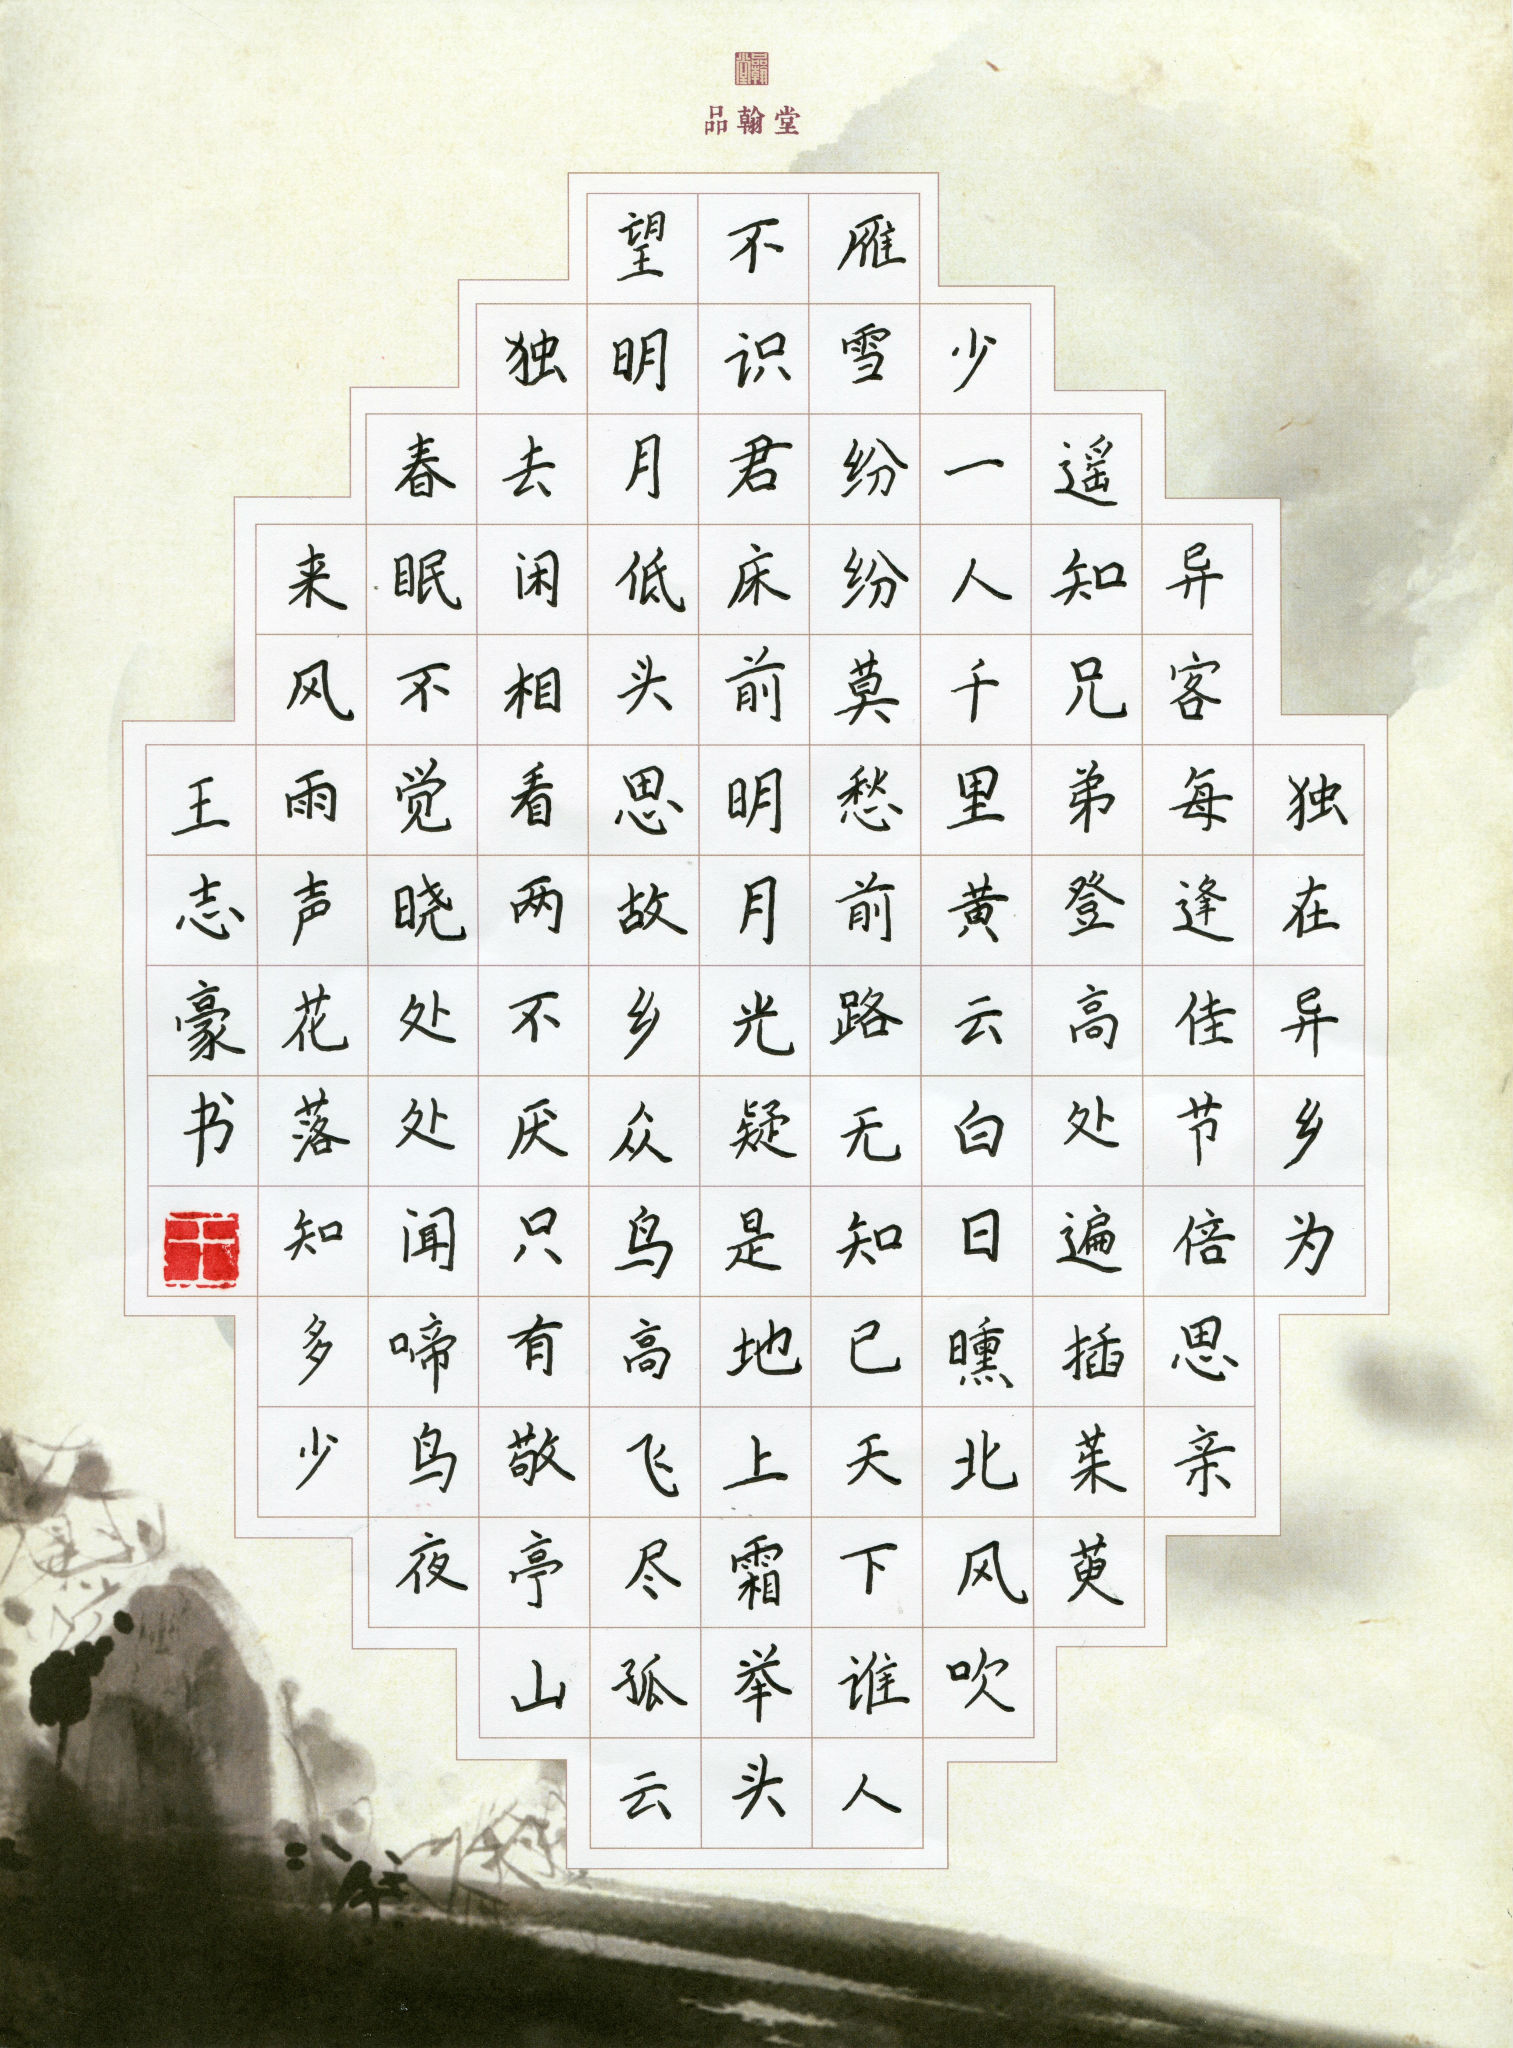 品翰堂
独在异乡为
异客每逢佳节倍思亲
遥知兄弟登高处遍插茱萸
少一人千里黄云白日曛北风吹
雁雪纷纷莫愁前路无知己天下谁人
不识君床前明月光疑是地上霜举头
望明月低头思故乡众鸟高飞尽孤云
独去闲相看两不厌只有敬亭山
春眠不觉晓处处闻啼鸟夜
来风雨声花落知多少
王志豪书